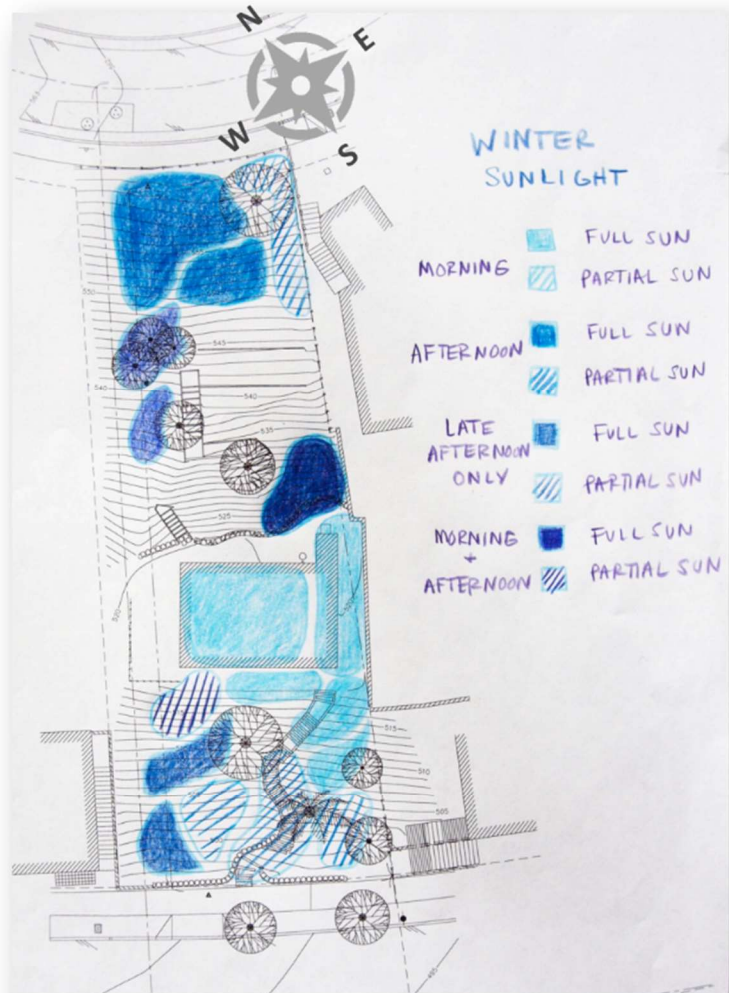 N
E
W
S
WINTER
SUNLIGHT
MORNING
FULL SUN
PARTIAL SUN
AFTERNOON
FULL SUN
PARTIAL SUN
LATE
AFTERNOON
ONLY
FULL SUN
PARTIAL SUN
MORNING
+
AFTERNOON
FULL SUN
PARTIAL SUN
550
545
540
540
535
525
520
515
510
505
495